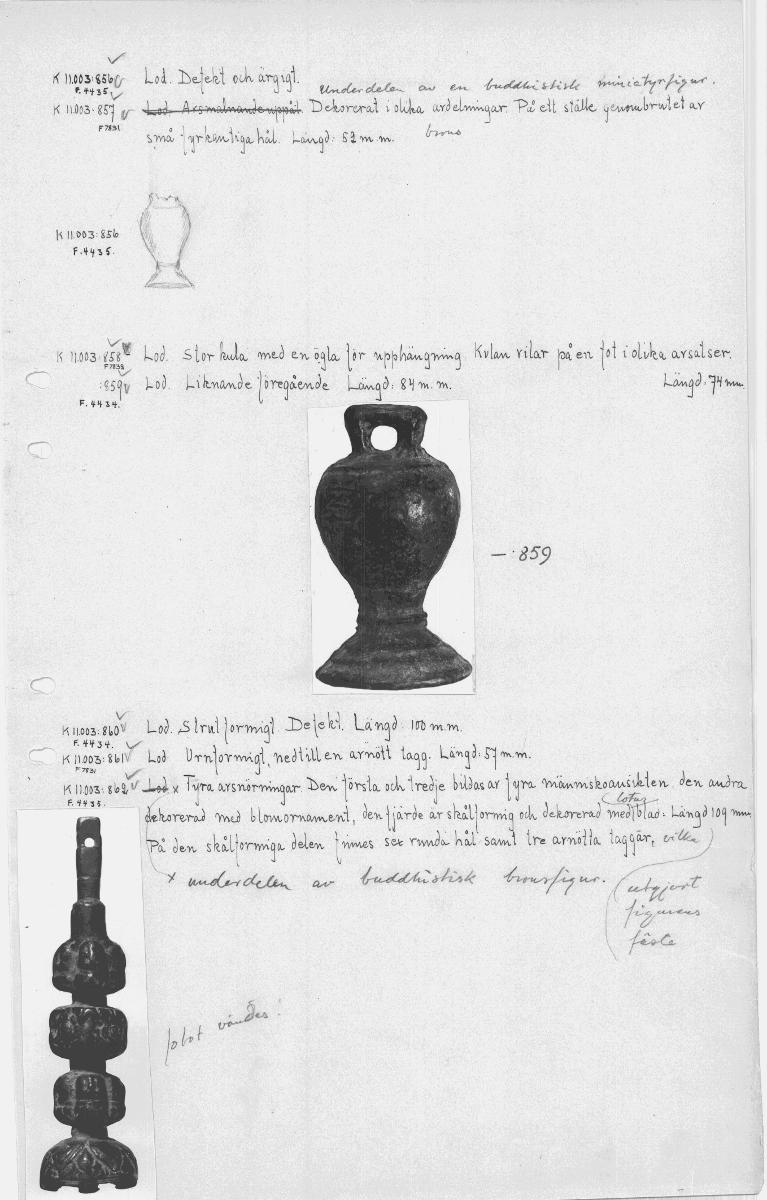 K 11.003:856 Lod. Defekt och ärgigt.
F.4435.
underdelen av en buddhistisk miniatyrfigur.
K 11.003:857 Lod. Avsmalnande uppåt. Dekorerat i olika avdelningar. På ett ställe genombrutet av
F 7831
små fyrkantiga hål. Längd: 52 m.m. brons
K 11.003:856
F.4435.
K 11.003:858 Lod. Stor kula med en ögla för upphängning. Kulan vilar på en fot i olika avsatser.
F 7838
Längd: 74 mm.
:859 Lod. Liknande föregående Längd: 84 m.m.
F.4434.
— : 859
K 11.003:860 Lod. Strutformigt. Defekt. Längd: 100 m.m.
F.4434.
K 11.003:861 Lod Urnformigt, nedtill en avnött tagg. Längd: 57 m.m.
F 7831
K 11.003:862 Lod x Fyra avsnörningar. Den första och tredje bildas av fyra människoansikten, den andra
F.4435.
dekorerad med blomornament, den fjärde är skålformig och dekorerad med lotus blad. Längd 109 mm.
På den skålformiga delen finnes sex runda hål samt tre avnötta taggar, vilka
utgjort
figurens
fäste
x underdelen av buddhistisk bronsfigur.
fotot vändes!